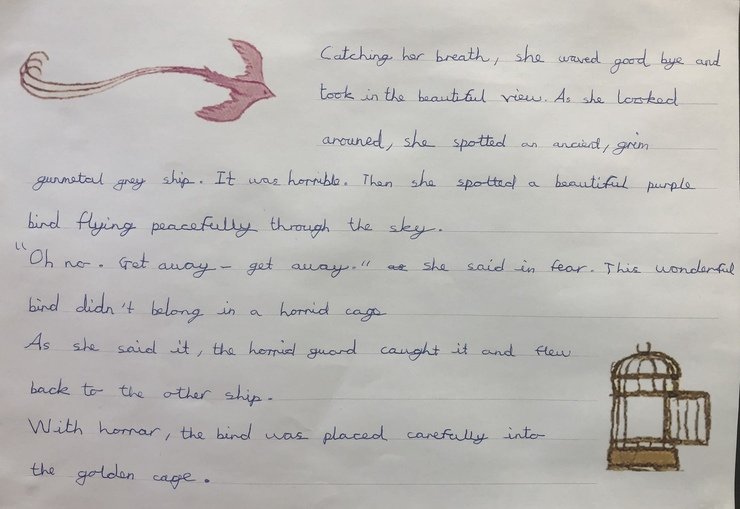 Catching her breath, she waved good bye and
took in the beautiful view. As she looked
arouned, she spotted an ancient, grim
gunmetal grey ship. It was horrible. Then she spotted a beautiful purple
bird flying peacefully through the sky.
"Oh no. Get away - get away." she said in fear. This wonderful
bird didn't belong in a horrid cage
As she said it, the horrid guard caught it and flew
back to the other ship.
With horror, the bird was placed carefully into
the golden cage.